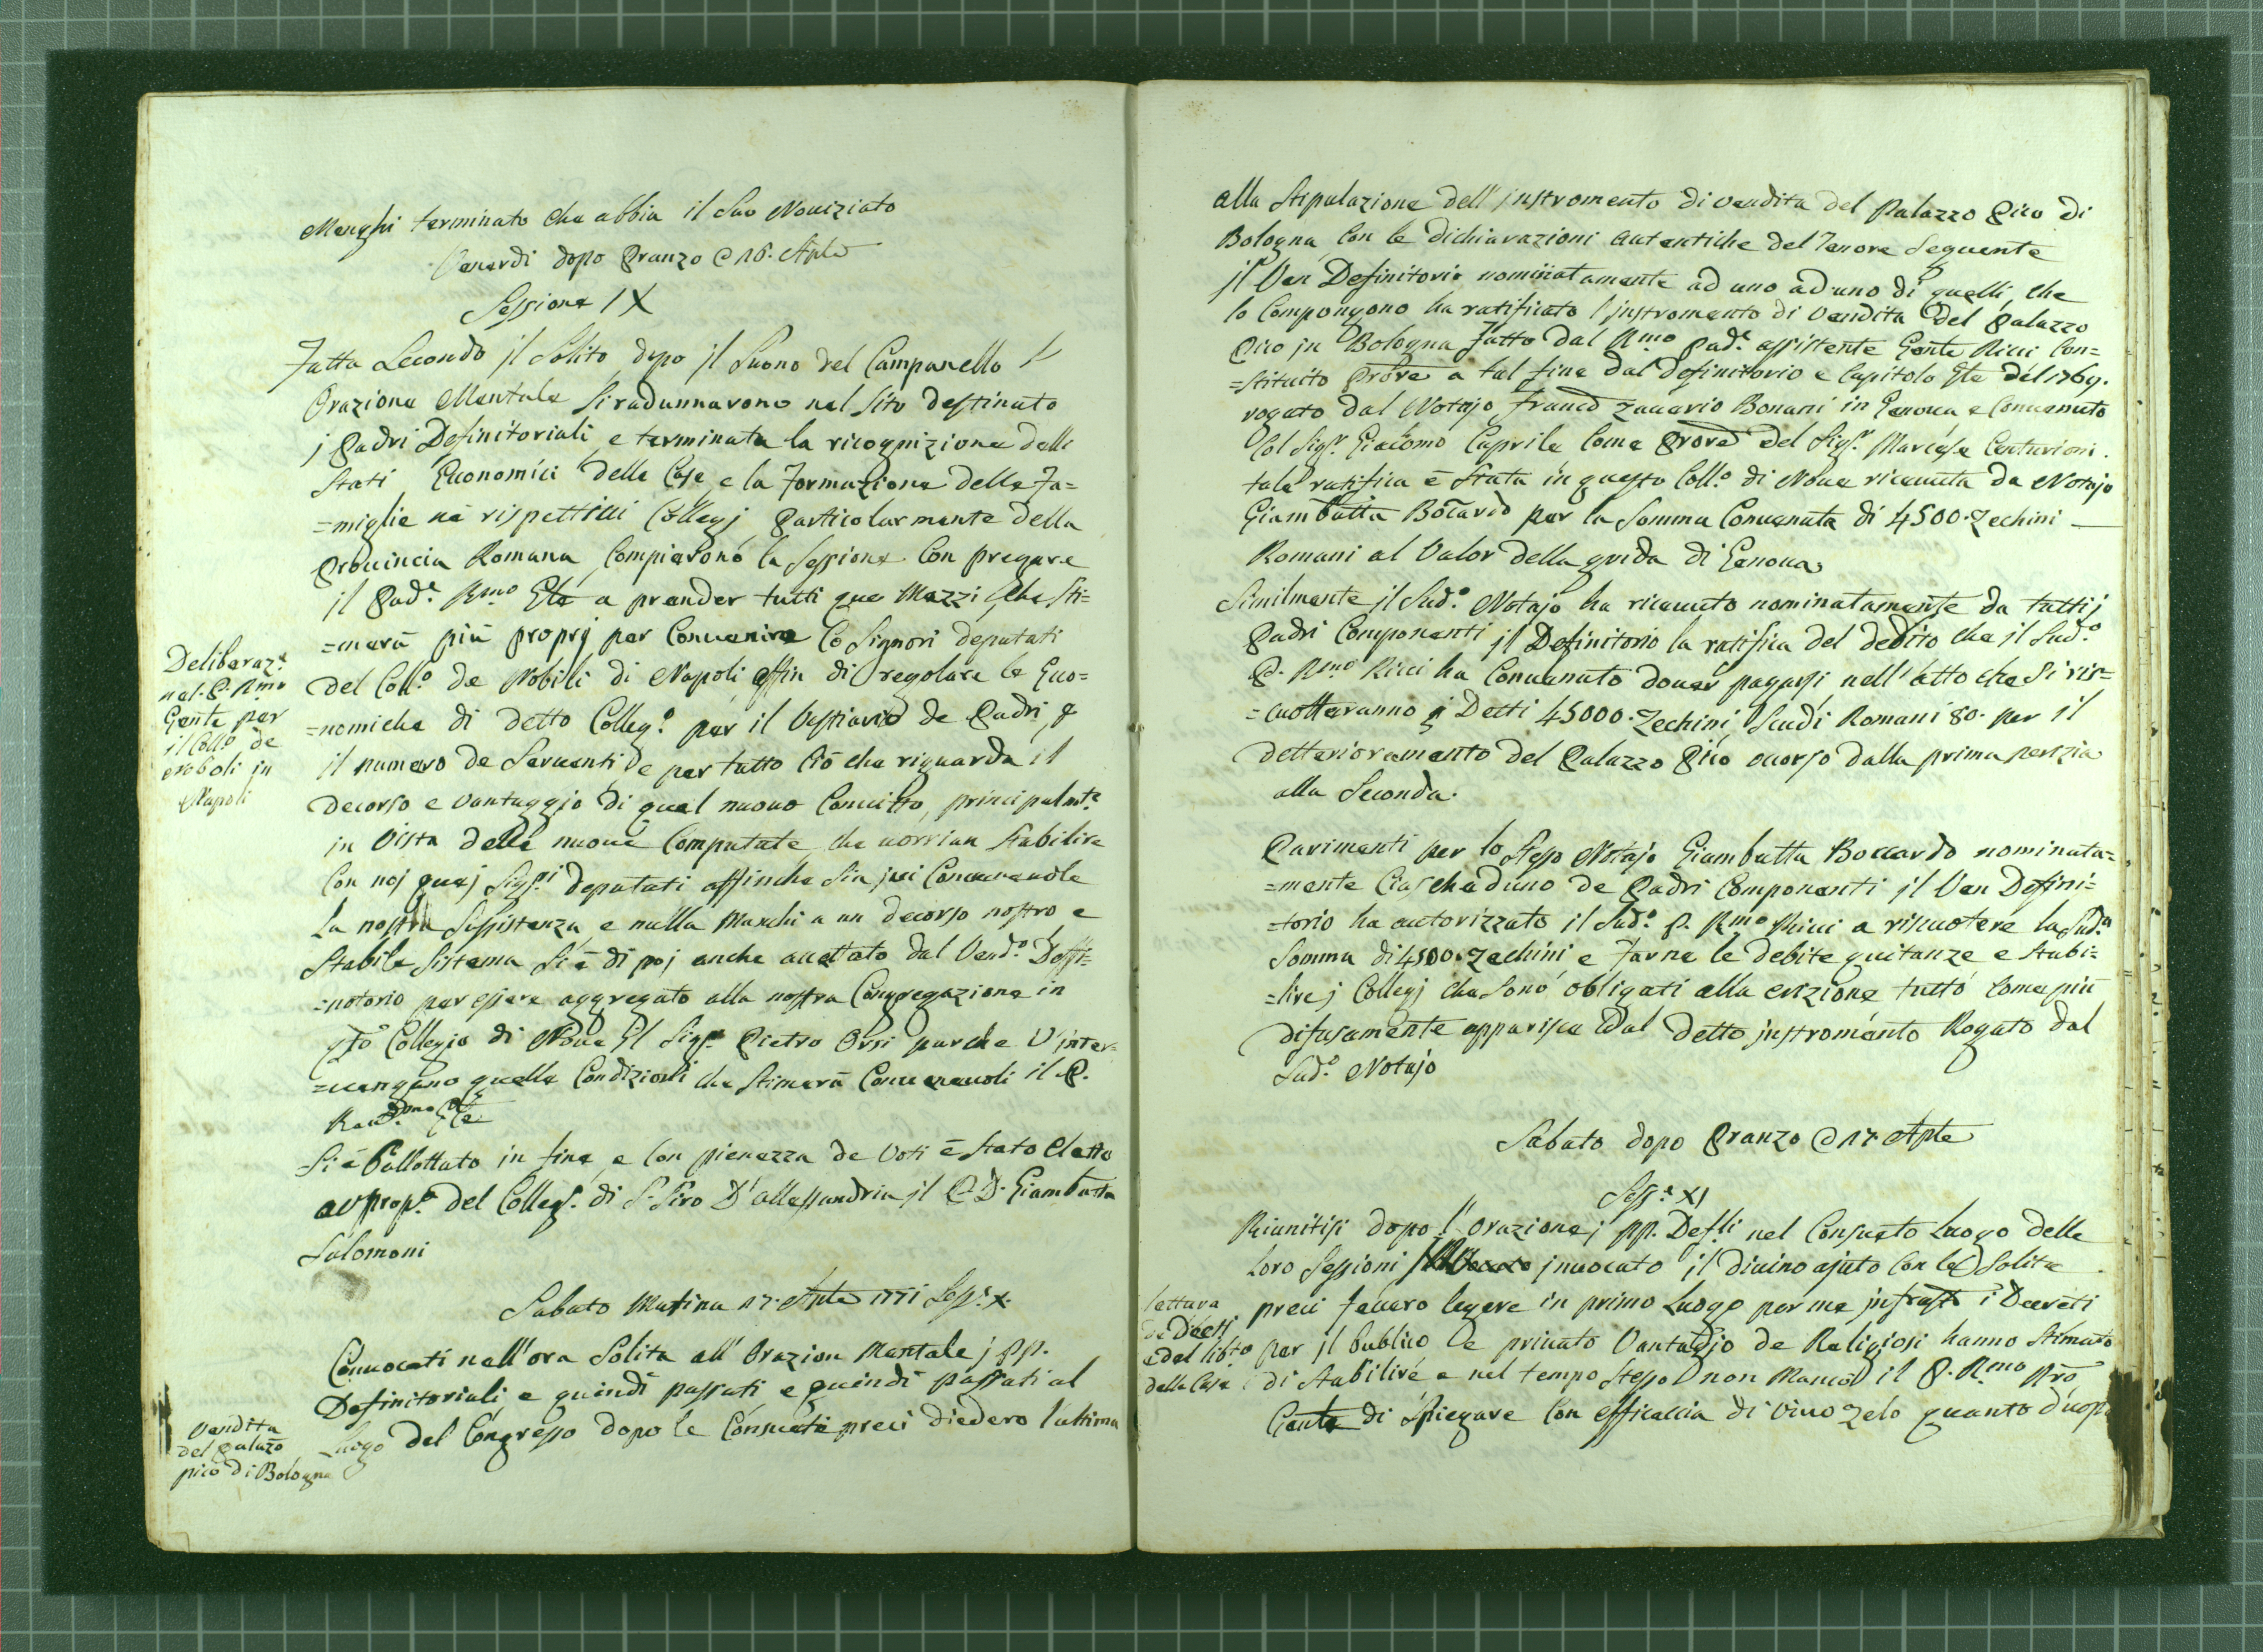 Menghi terminato che abbia il suo Noviziato
Venerdi dopo Pranzo @ 16. Aple
Sessione IX
Fatta Secondo jl Solito dopo jl Suono del Campanello l'
Orazione Mentale si radunnarono nel Sito destinato
j Padri Definitoriali e terminata la ricognizione delli
Stati Economici delle Case e la Formazione delle Fa=
=miglie ne rispettivi Collegj Particolarmente della
Provincia Romana Compierono la Sessione Con pregare
il Pad.e Rmo Gle a prender tutti que Mezzi che Sti=
=merà più proprj per Convenire Co Signori deputati
del Coll.o de Nobili di Napoli affin di regolare le Eco=
=nomiche di detto Colleg.o per il Vestiario de Padri, e
il numero de Serventi e per tutto Ciò che riguarda il
Deliberaz.e
nel P. Rmo
Gente per
il Coll.o de
Noboli in
Napoli
decorso e Vantaggio di quel nuovo Convitto, principalmte
in Vista delle nuove Computate che vorrian Stabilire
Con noj quej Sigri deputati affinche Sia jvi Convenevole
La nostra Sussistenza e nulla Manchi a un decorso nostro e
Stabile Sistema Si è di poj anche accettato dal Vend.o Deffi=
=notorio per essere aggregato alla nostra Congregazione in
qto Collegio di Nove Il Sigre Pietro Orsi purche V'inter=
=vengano quelle Condizioni che Stimerà Convenevoli il P.
Revdmo Gle
Si è Ballottato in fine e Con pienezza de Voti è Stato Eletto
Prop.o del Colleg.o di S. Siro D'Allessandria jl P. D. Giambatta
Salomoni
Sabato Matina 17. Aple 1771 Sess.e X.
Convocati nell'ora Solita all'Orazion Mentale j PP.
Definitoriali e quindi passati e quindi passati al
Luogo del Congresso dopo le Consuete preci diedero l'ultima
Vendita
del Palazo
pico di Bologna
alla Stipulazione dell'jnstromento di vendita del Palazzo Pico di
Bologna Con le dichiarazioni autentiche del Tenore Seguente
jl Ven Definitorio nominatamente ad uno ad uno di quelli, che
lo Compongono ha ratificato l'jnstromento di Vendita del Palazzo
Pico jn Bologna Fatto dal Rmo Pad.e assistente Gente Ricci Con=
=stituito Prore a tal fine dal Definitorio e Capitolo Gle del 1769.
rogato dal Notajo Franco Zaccario Bonani in Genova e Convenuto
Col Sigr. Giacomo Caprile Come Prore del Sigr. Marchese Centurioni.
tale ratifica è Stata in questo Coll.o di Nove ricevuta da Notajo
Giambatta Bocardo per la Somma Convenuta di 4500. Zechini
Romani al Valor della grida di Genova.
Similmente jl Sud.o Notajo ha ricevuto nominatamente da tutti j
Padri Componenti jl Definitorio la ratifica del dedito che il Sud.o
P. Rmo Ricci ha Convenuto dover pagarsi nell'atto che Si ris=
=cuotteranno j Detti 45000. Zechini, Scudi Romani 80. per il
detterioramento del Palazzo Pico occorso dalla prima perizia
alla Seconda.
Parimenti per lo Stesso Notajo Giambatta Boccardo nominata=
=mente Ciascheduno de Padri Componenti jl Ven Defini=
=torio ha autorizzato il Sud.o P. Rmo Ricci a riscuotere la Sud.a
Somma di 4500. Zechini e Farne le debite quitanze e Stabi=
=lire j Collegj che Sono obligati alla evizione tutto Come più
difusamente apparisce dal detto jnstromento Rogato dal
Sud.o Notajo
Sabato dopo Pranzo @ 17 Aple
Sess.e XI
Riunitisi dopo l'Orazione j PP. Defli nel Consueto Luogo delle
loro Sessioni jnvocato il divino ajuto Con le Solite
preci fecero legere in primo Luogo per me jnfrastto i Decreti
lettura
de Dècti
e del libto
delle Case
per jl Publico e privato Vantaggio de Religiosi hanno Stimato
di Stabilire e nel tempo Stesso non Mancò il P. Rmo Pro
Gente di Spiegare Con efficaccia di vivo Zelo quanto d'uopo